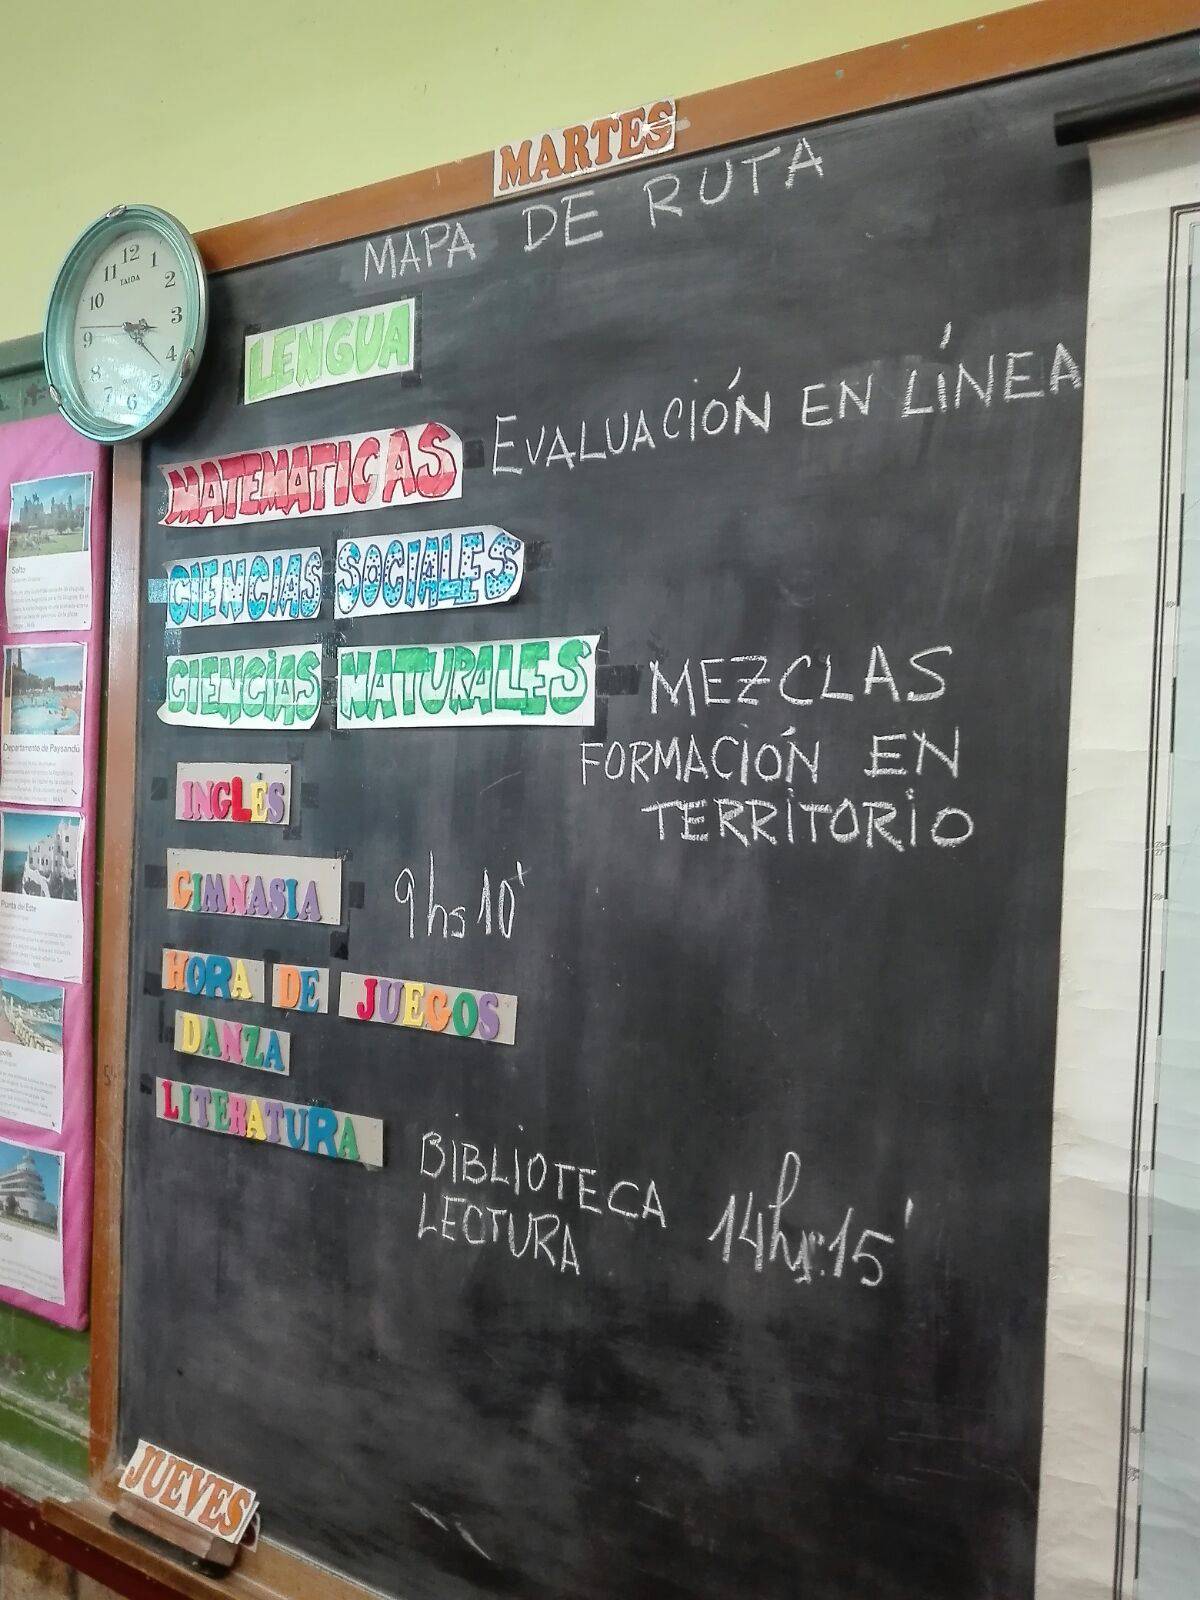 MARTES
MAPA DE RUTA
12
11 1
TAIDA
10 2
9 3
8 4
7 6 5
LENGUA
MATEMATICAS EVALUACIÓN EN LÍNEA
CIENCIAS SOCIALES
CIENCIAS NATURALES MEZCLAS
FORMACIÓN EN
TERRITORIO
INGLÉS
GIMNASIA 9hs 10'
HORA DE JUEGOS
DANZA
LITERATURA
BIBLIOTECA
LECTURA 14hs:15'
JUEVES
Salto
Departamento de Paysandú
Punta del Este